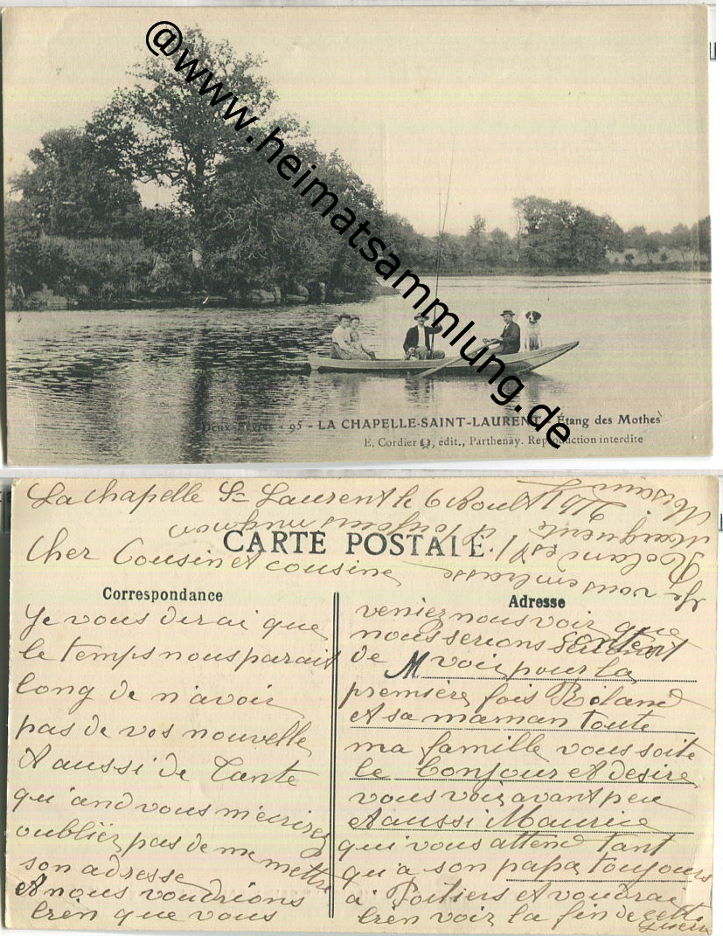 @www.heimatsammlung.de
Deux-Sèvres - 95 - LA CHAPELLE-SAINT-LAURENT - Étang des Mothes
E. Cordier, édit., Parthenay. Reproduction interdite
La Chapelle St Laurent le 6 Aout 1916
CARTE POSTALE
Cher Cousin et cousine
Correspondance
Je vous dirai que
le temps nous parait
long de n'avoir
pas de vos nouvelle
Aaussi de Tante
qu'and vous m'écrirez
oubliez pas de me mettre
son adresse
et nous voudrions
bien que vous
Adresse
veniez nous voir que
nous serions content
de voir pour la
première fois Roland
et sa maman toute
ma famille vous soite
le bonjour et desire
vous voir avant peu
et aussi Maurice
qui vous attend tant
qu'a son papa toujours
a Poitiers et voudrai
bien voir la fin de cette
guerre
Je vous embrasse